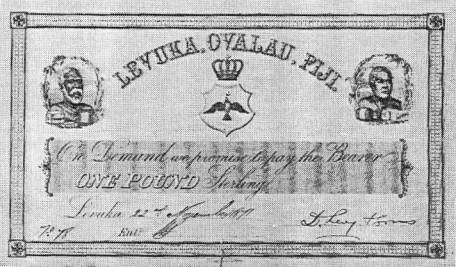 LEVUKA, OVALAU, FIJI.
On Demand we promise to pay the Bearer
ONE POUND Sterling
Levuka 22nd 187
No
Ent
D. Levy &